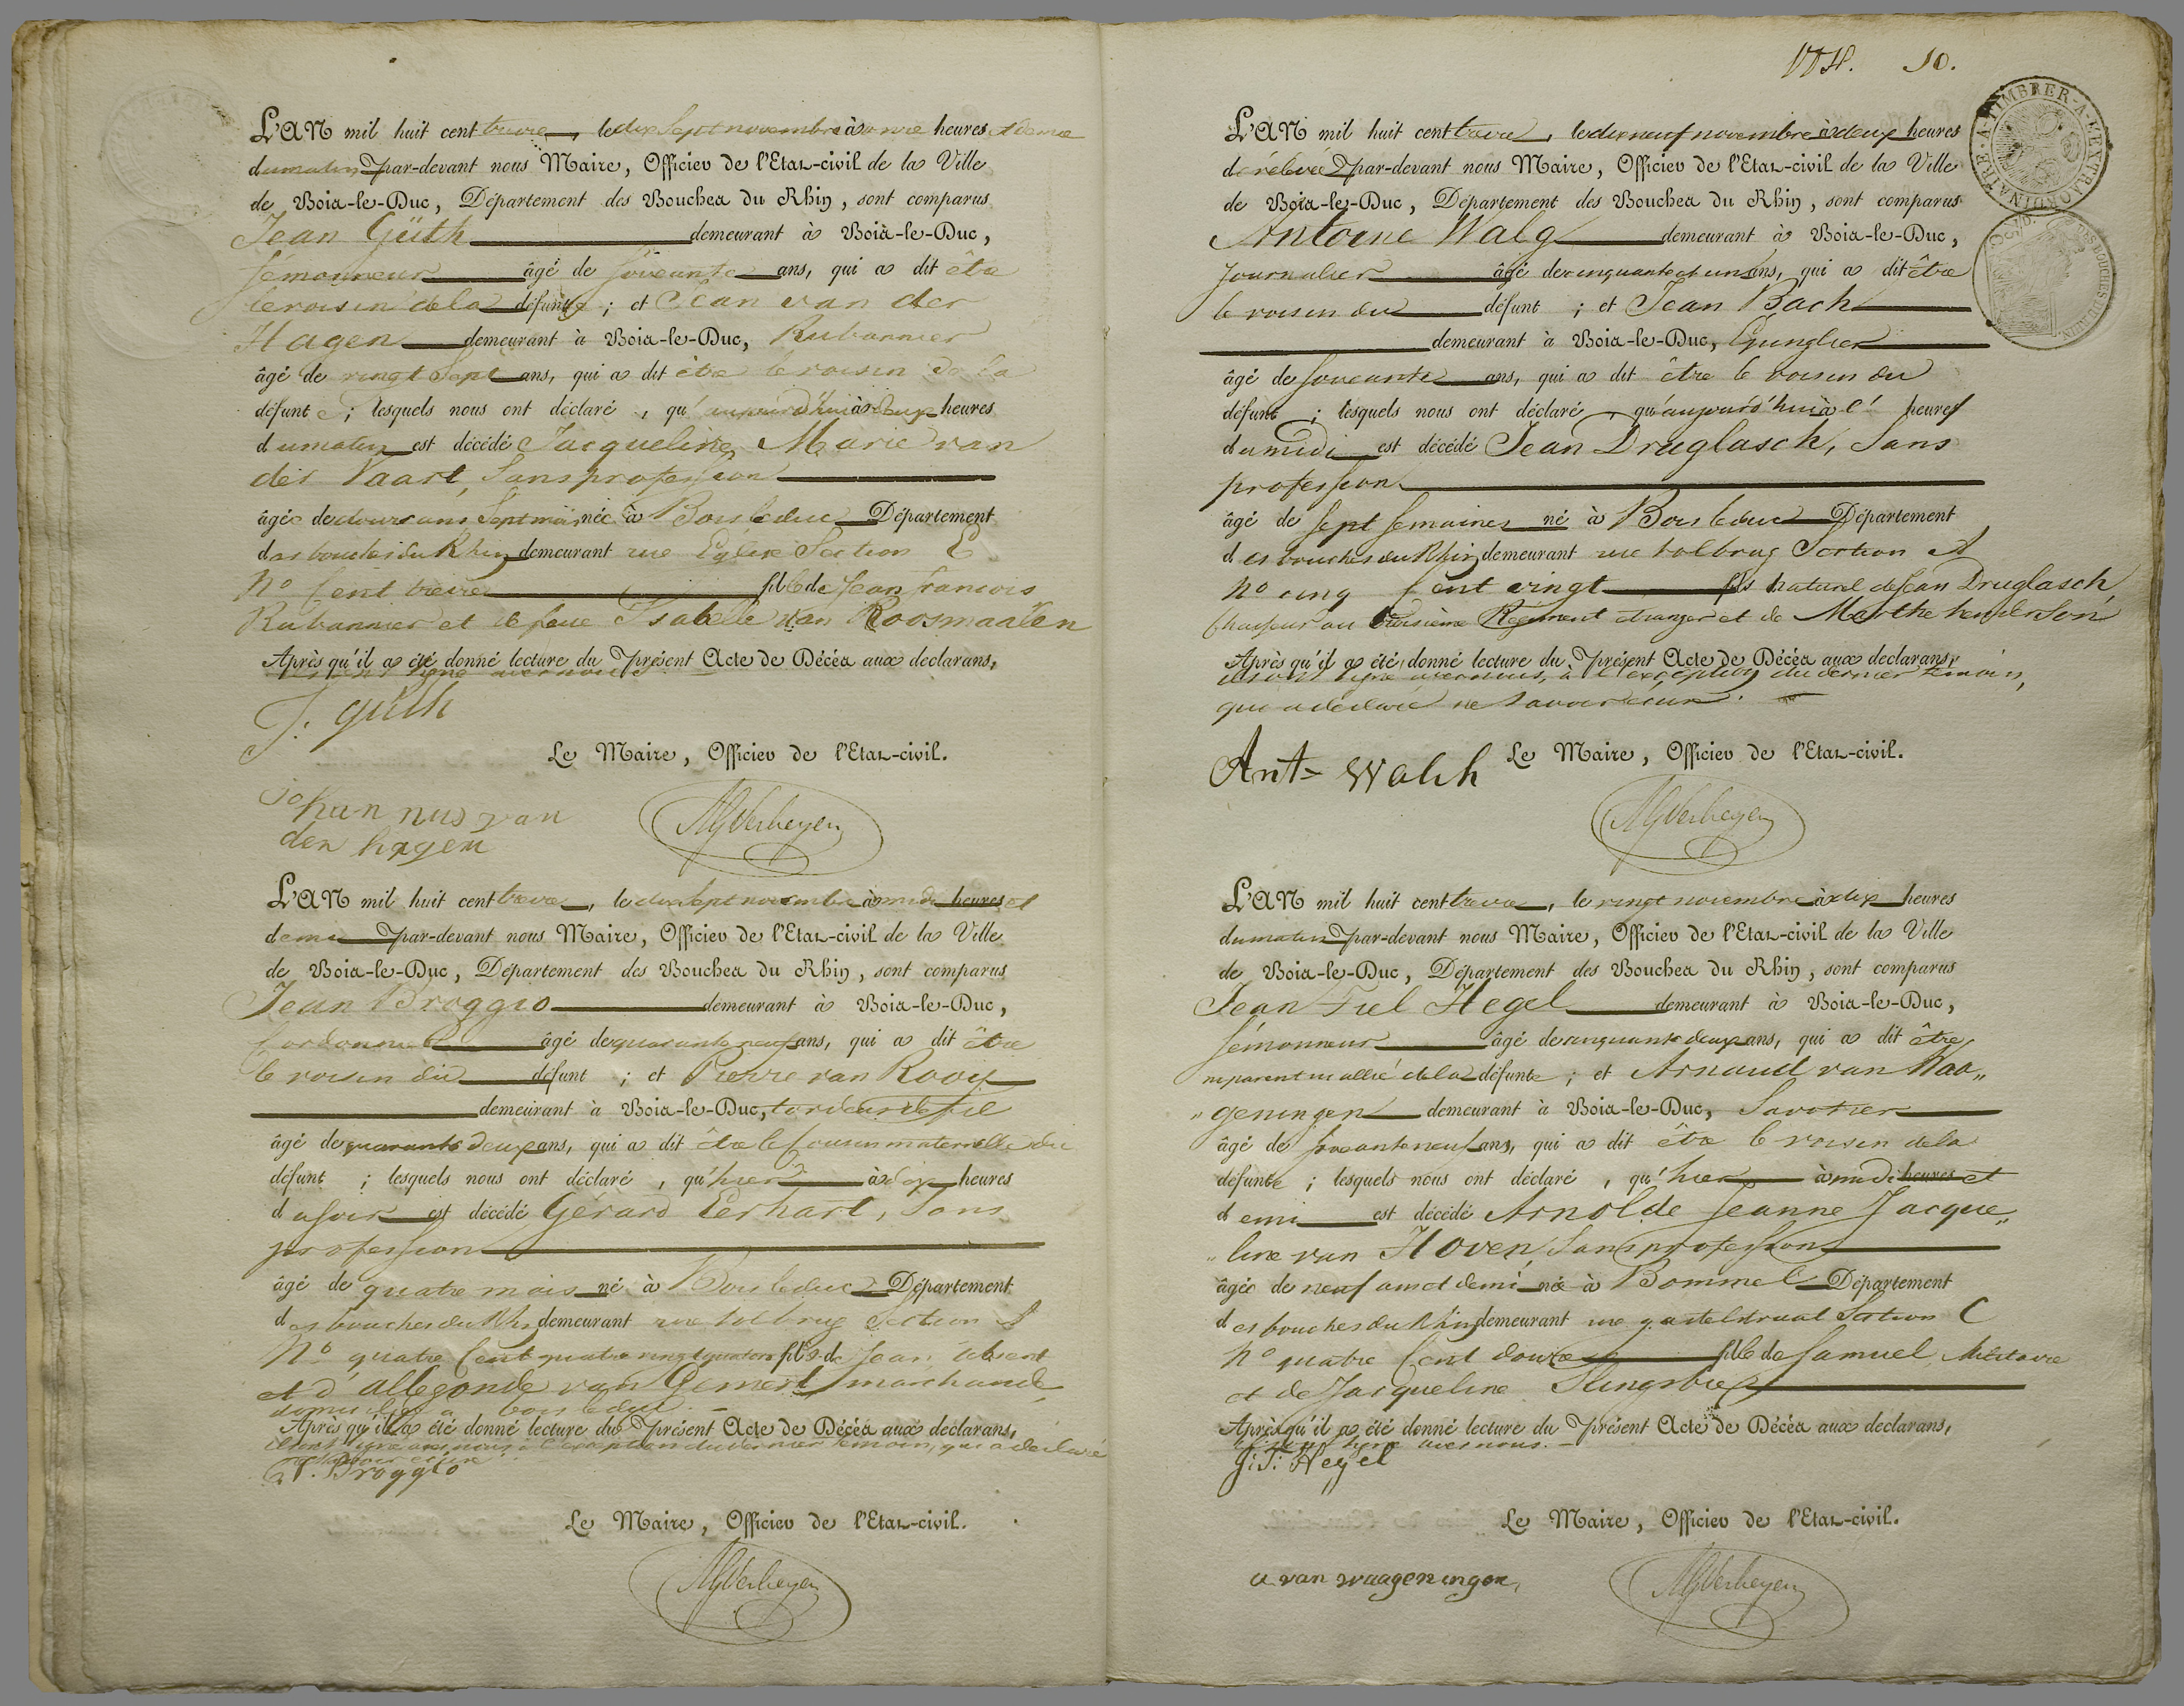 L'AN mil huit cent treize, le dix sept novembre à onze heures et demie
du matin par-devant nous Maire, Officier de l'Etat-civil de la Ville
de Bois-le-Duc, Département des Bouches du Rhin, sont comparus
Jean Güth demeurant à Bois-le-Duc,
Semonneur âgé de soixante ans, qui a dit être
le voisin de la défunte ; et Jean van der
Hagen demeurant à Bois-le-Duc, Rubannier
âgé de vingt sept ans, qui a dit être le voisin de la
défunte ; lesquels nous ont déclaré, qu'aujourd'hui à deux heures
du matin est décédé Jacqueline Marie van
der Vaart, sans profession
âgée de douze ans sept mois née à Bois le duc Département
des bouches du Rhin demeurant rue Eglise Section E
No cent treize fille de Jean francois
Rubannier et de feue Isabelle van Roosmaalen
Après qu'il a été donné lecture du présent Acte de Décès aux declarans,
ils ont signé avec nous
J. Güth
Le Maire, Officier de l'Etat-civil.
Johan nus van
den hagen
AGVerheyen
L'AN mil huit cent treize, le dix sept novembre à midi heures et
demie par-devant nous Maire, Officier de l'Etat-civil de la Ville
de Bois-le-Duc, Département des Bouches du Rhin, sont comparus
Jean Broggio demeurant à Bois-le-Duc,
Cordonnier âgé de quarante neuf ans, qui a dit être
le voisin du défunt ; et Pierre van Rooy
demeurant à Bois-le-Duc, tordeur de fil
âgé de quarante deux ans, qui a dit être le Cousin maternelle du
défunt ; lesquels nous ont déclaré, qu'hier à dix heures
du soir est décédé Gérard Eerhart, sans
profession
âgé de quatre mois né à Bois le duc Département
des bouches du Rhin demeurant rue tolbrug Section A
No quatre Cent quatre vingt quatorze fils de Jean, absent
et d'allegonde van Gemert marchande
domiciliés à bois le duc.
Après qu'il a été donné lecture du présent Acte de Décès aux declarans,
ils ont signé avec nous à l'exception du dernier temoin, qui a declaré
ne savoir écrire
J. Broggio
Le Maire, Officier de l'Etat-civil.
AGVerheyen
10.
A TIMBRER A L'EXTRAORDINAIRE
DES BOUCHES DU RHIN
L'AN mil huit cent treize, le dix neuf novembre à deux heures
de rélevée par-devant nous Maire, Officier de l'Etat-civil de la Ville
de Bois-le-Duc, Département des Bouches du Rhin, sont comparus
Antoine Walg demeurant à Bois-le-Duc,
Journalier âgé de cinquante et un ans, qui a dit être
le voisin du défunt ; et Jean Bach
demeurant à Bois-le-Duc, Epinglier
âgé de soixante ans, qui a dit être le voisin du
défunt ; lesquels nous ont déclaré, qu'aujourd'hui à l' heures
du midi est décédé Jean Druglasch, sans
profession
âgé de sept semaines né à Bois le duc Département
des bouches du Rhin demeurant rue tolbrug Section A
No cinq Cent vingt fils naturel de Jean Druglasch,
Chasseur au troisième Régiment etranger et de Marthe henderson
Après qu'il a été donné lecture du présent Acte de Décès aux declarans,
ils ont signé avec nous, à l'exception du dernier témoin,
qui a declaré ne savoir écrire.
Ant= Walch
Le Maire, Officier de l'Etat-civil.
AGVerheyen
L'AN mil huit cent treize, le vingt novembre à dix heures
du matin par-devant nous Maire, Officier de l'Etat-civil de la Ville
de Bois-le-Duc, Département des Bouches du Rhin, sont comparus
Jean Fiel Hegel demeurant à Bois-le-Duc,
Sémonneur âgé de cinquante deux ans, qui a dit être
ni parent ni allié de la défunte ; et Arnaud van Waa„
„geningen demeurant à Bois-le-Duc, Savetier
âgé de soixante neuf ans, qui a dit être le voisin de la
défunte ; lesquels nous ont déclaré, qu'hier à midi heures et
demi est décédé Arnolde Jeanne Jacque„
„line van Hoven, sans profession
âgée de neuf ans et demi née à Bommel Département
des bouches du Rhin demeurant rue gasteldraat Section C
No quatre Cent douze fille de Samuel, Militaire
et de Jacqueline Slingsbie
Après qu'il a été donné lecture du présent Acte de Décès aux declarans,
ils ont signé avec nous.
J: F: Hegel
Le Maire, Officier de l'Etat-civil.
a van waageningen,
AGVerheyen